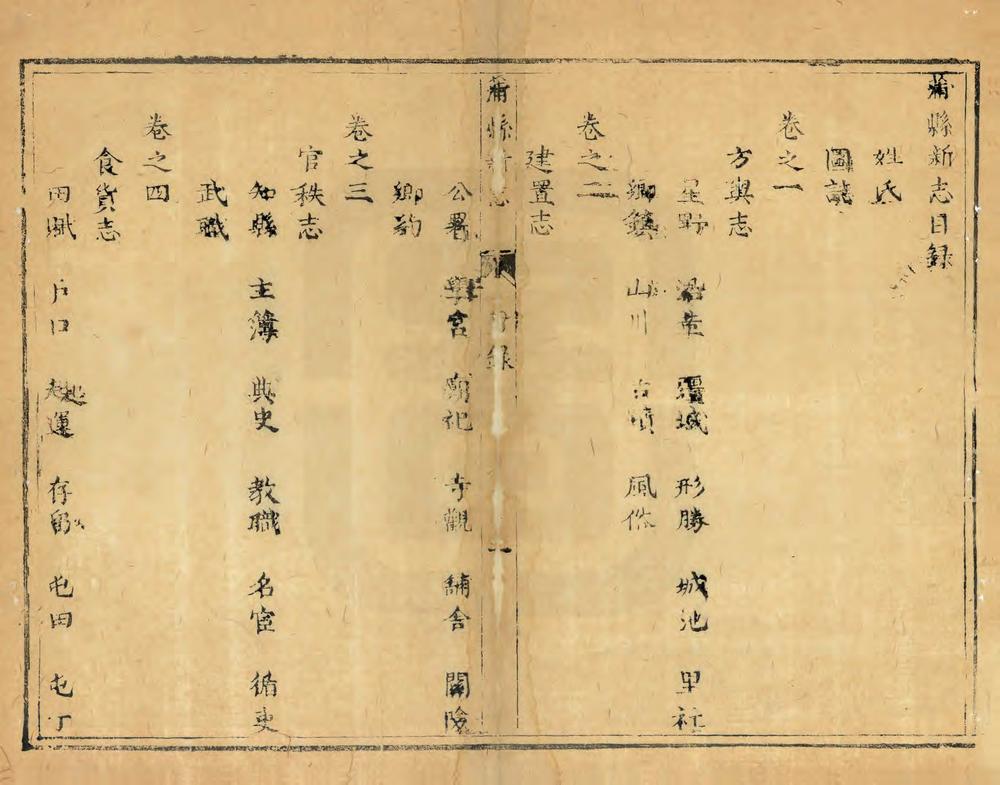 蒲縣新志目録
姓氏
圖誌
卷之一
方輿志
星野 沿革 疆域 形勝 城池 里社
鄉鎮 山川 古蹟 風俗
卷之二
建置志
蒲縣新志 目録 一
公署 學宮 廟祀 寺觀 舖舍 關隘
鄉約
卷之三
官秩志
知縣 主簿 典史 教職 名宦 循吏
武職
卷之四
食貨志
田賦 戶口 起運 存留 屯田 屯丁